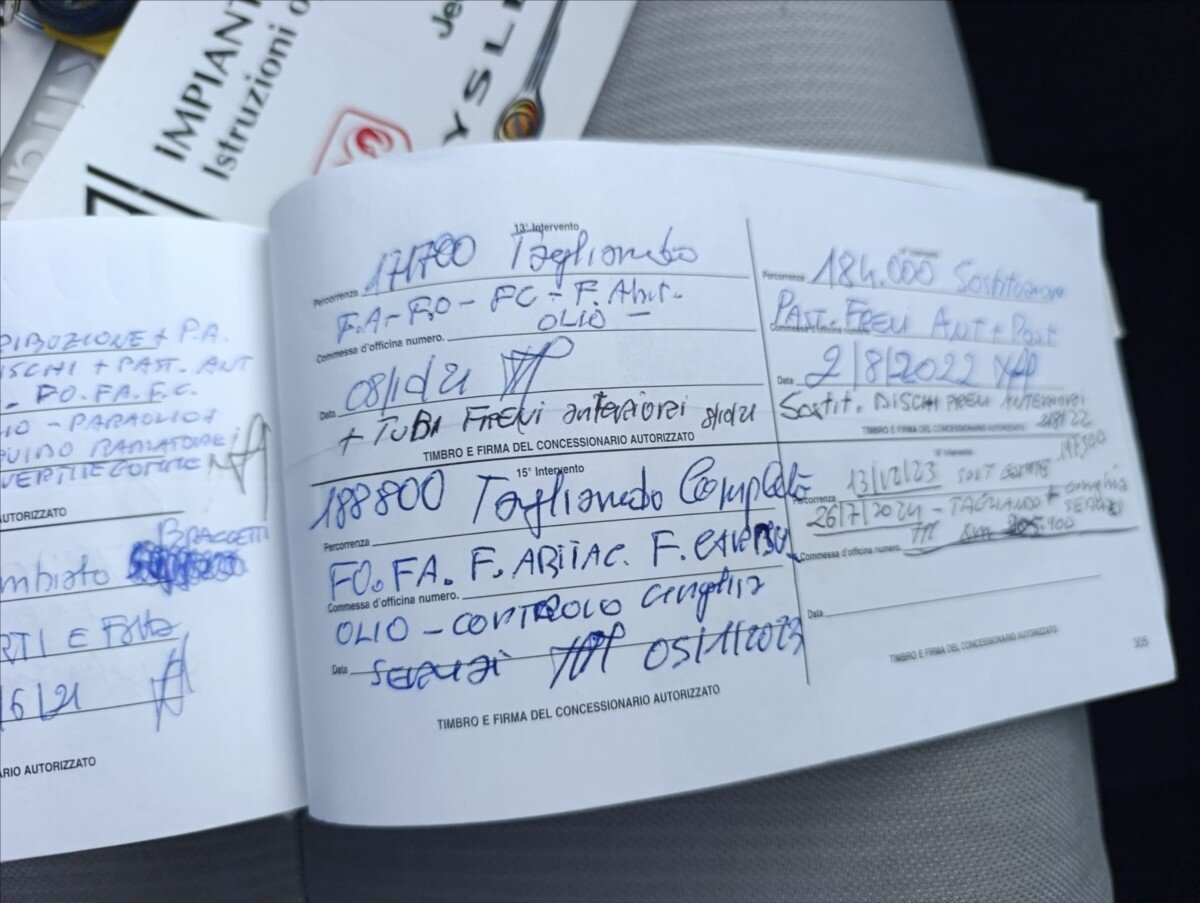 IMPIANT
Istruzioni o
Je
YSLE
RIBUZIONE + P.A.
ISCHI + PAST. ANT
FO. FA. F.C.
PARAOLIO +
VERTITE GOMME
AUTORIZZATO
BRACCETTI
mbiato
RTI E
/6/21
ARIO AUTORIZZATO
13° Intervento
Percorrenza 171700 Tagliando
F.A - F.O - FC - F. Abit. -
OLIO -
Commessa d'officina numero.
Data 08/10/21
+ TUBI FRENI anteriori 8/10/21
TIMBRO E FIRMA DEL CONCESSIONARIO AUTORIZZATO
Intervento
Percorrenza 184.000 Sostituzione
PAST. FRENI ANT + Post
Commessa d'officina numero.
Data 2/8/2022
Sostit. DISCHI FRENI ANTERIORI
TIMBRO E FIRMA DEL CONCESSIONARIO AUTORIZZATO
15° Intervento
188800 Tagliando Completo
Percorrenza
FO. FA. F. ABITAC. F.
Commessa d'officina numero.
OLIO - CONTROLLO cinghia
Data SERVIZI 05/11/2023
TIMBRO E FIRMA DEL CONCESSIONARIO AUTORIZZATO
Intervento
13/12/23 SOST GOMME
Percorrenza
26/7/2024 - TAGLIANDO + cinghia
SERVIZI
Commessa d'officina numero.
Data
TIMBRO E FIRMA DEL CONCESSIONARIO AUTORIZZATO
305